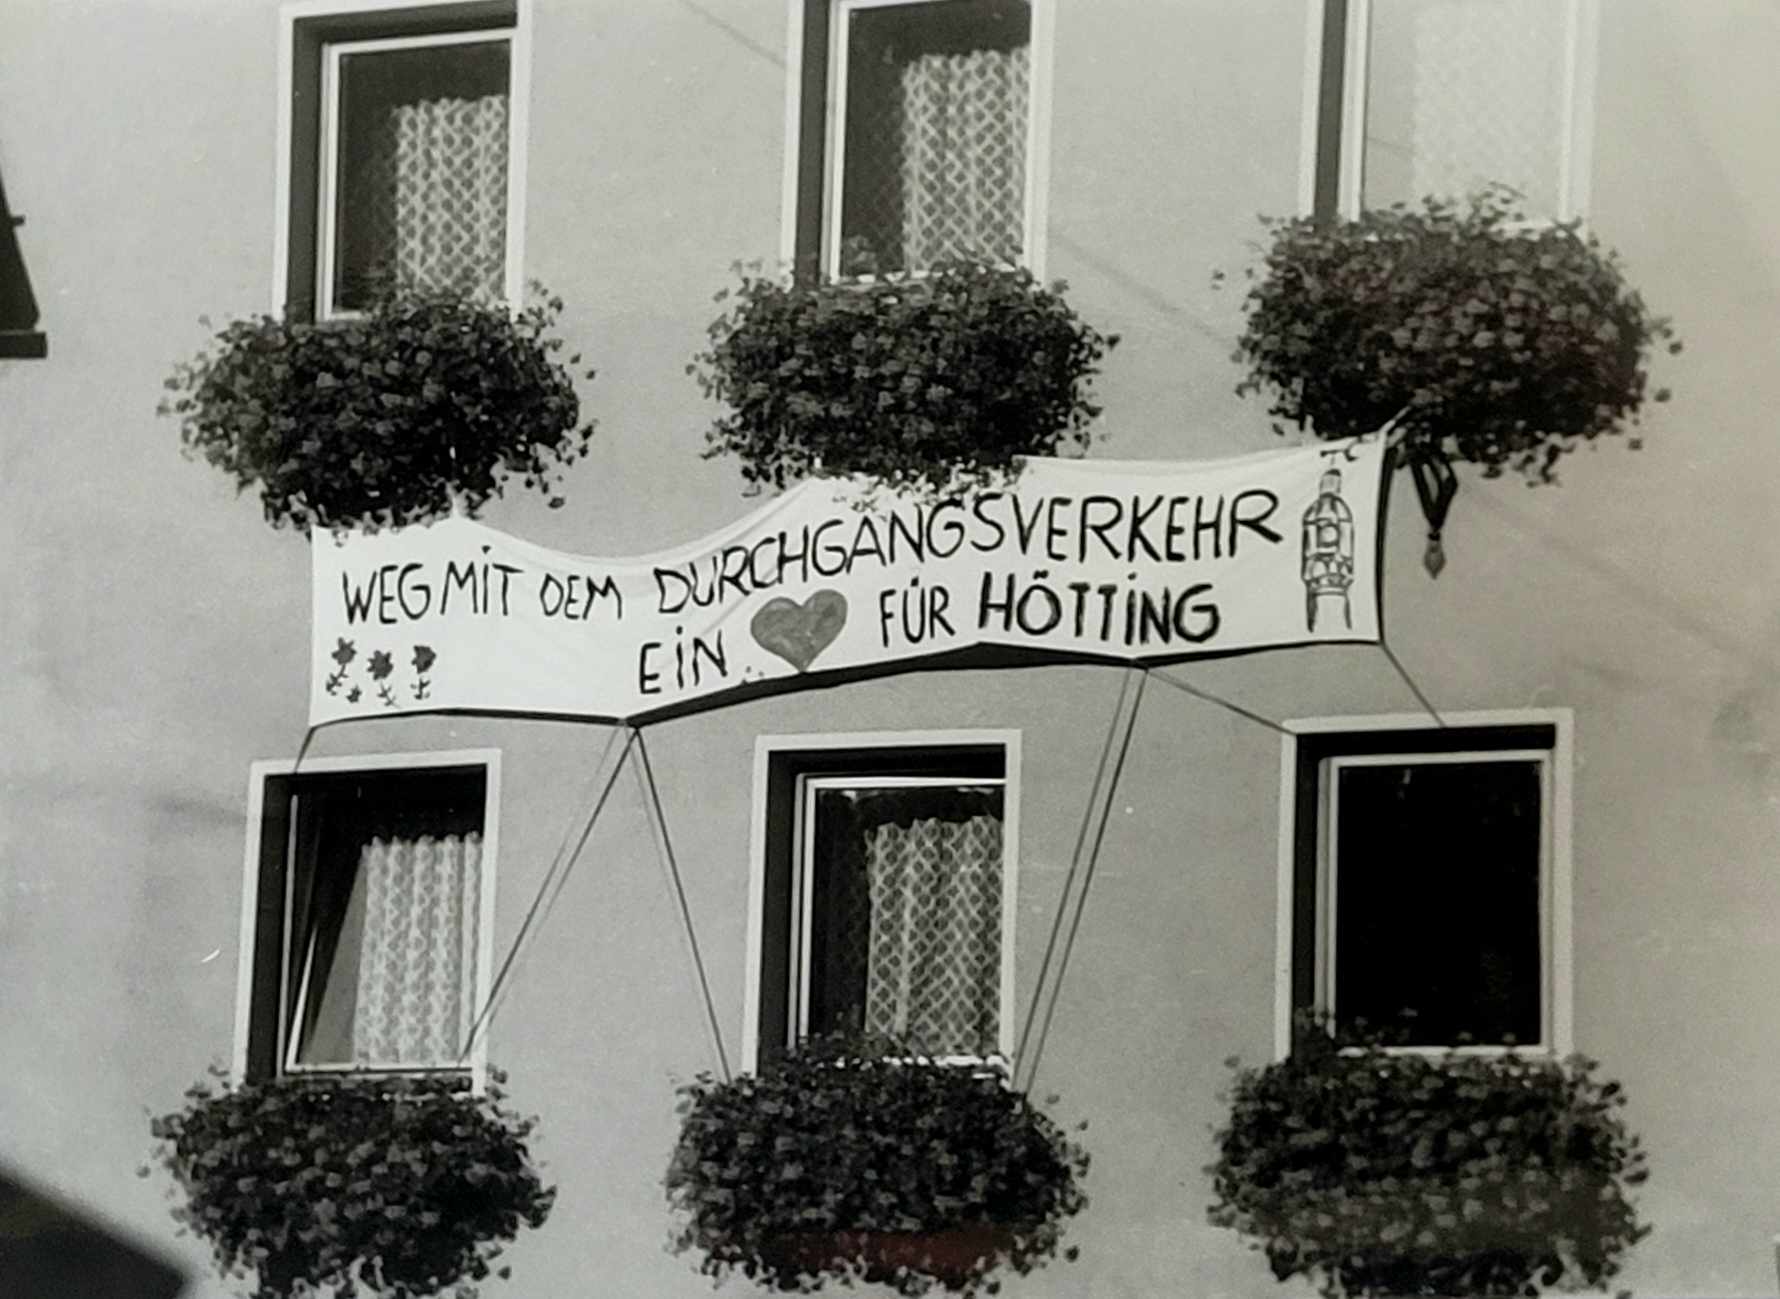 WEG MiT DEM DURCHGANGSVERKEHR
EiN FÜR HÖTTiNG